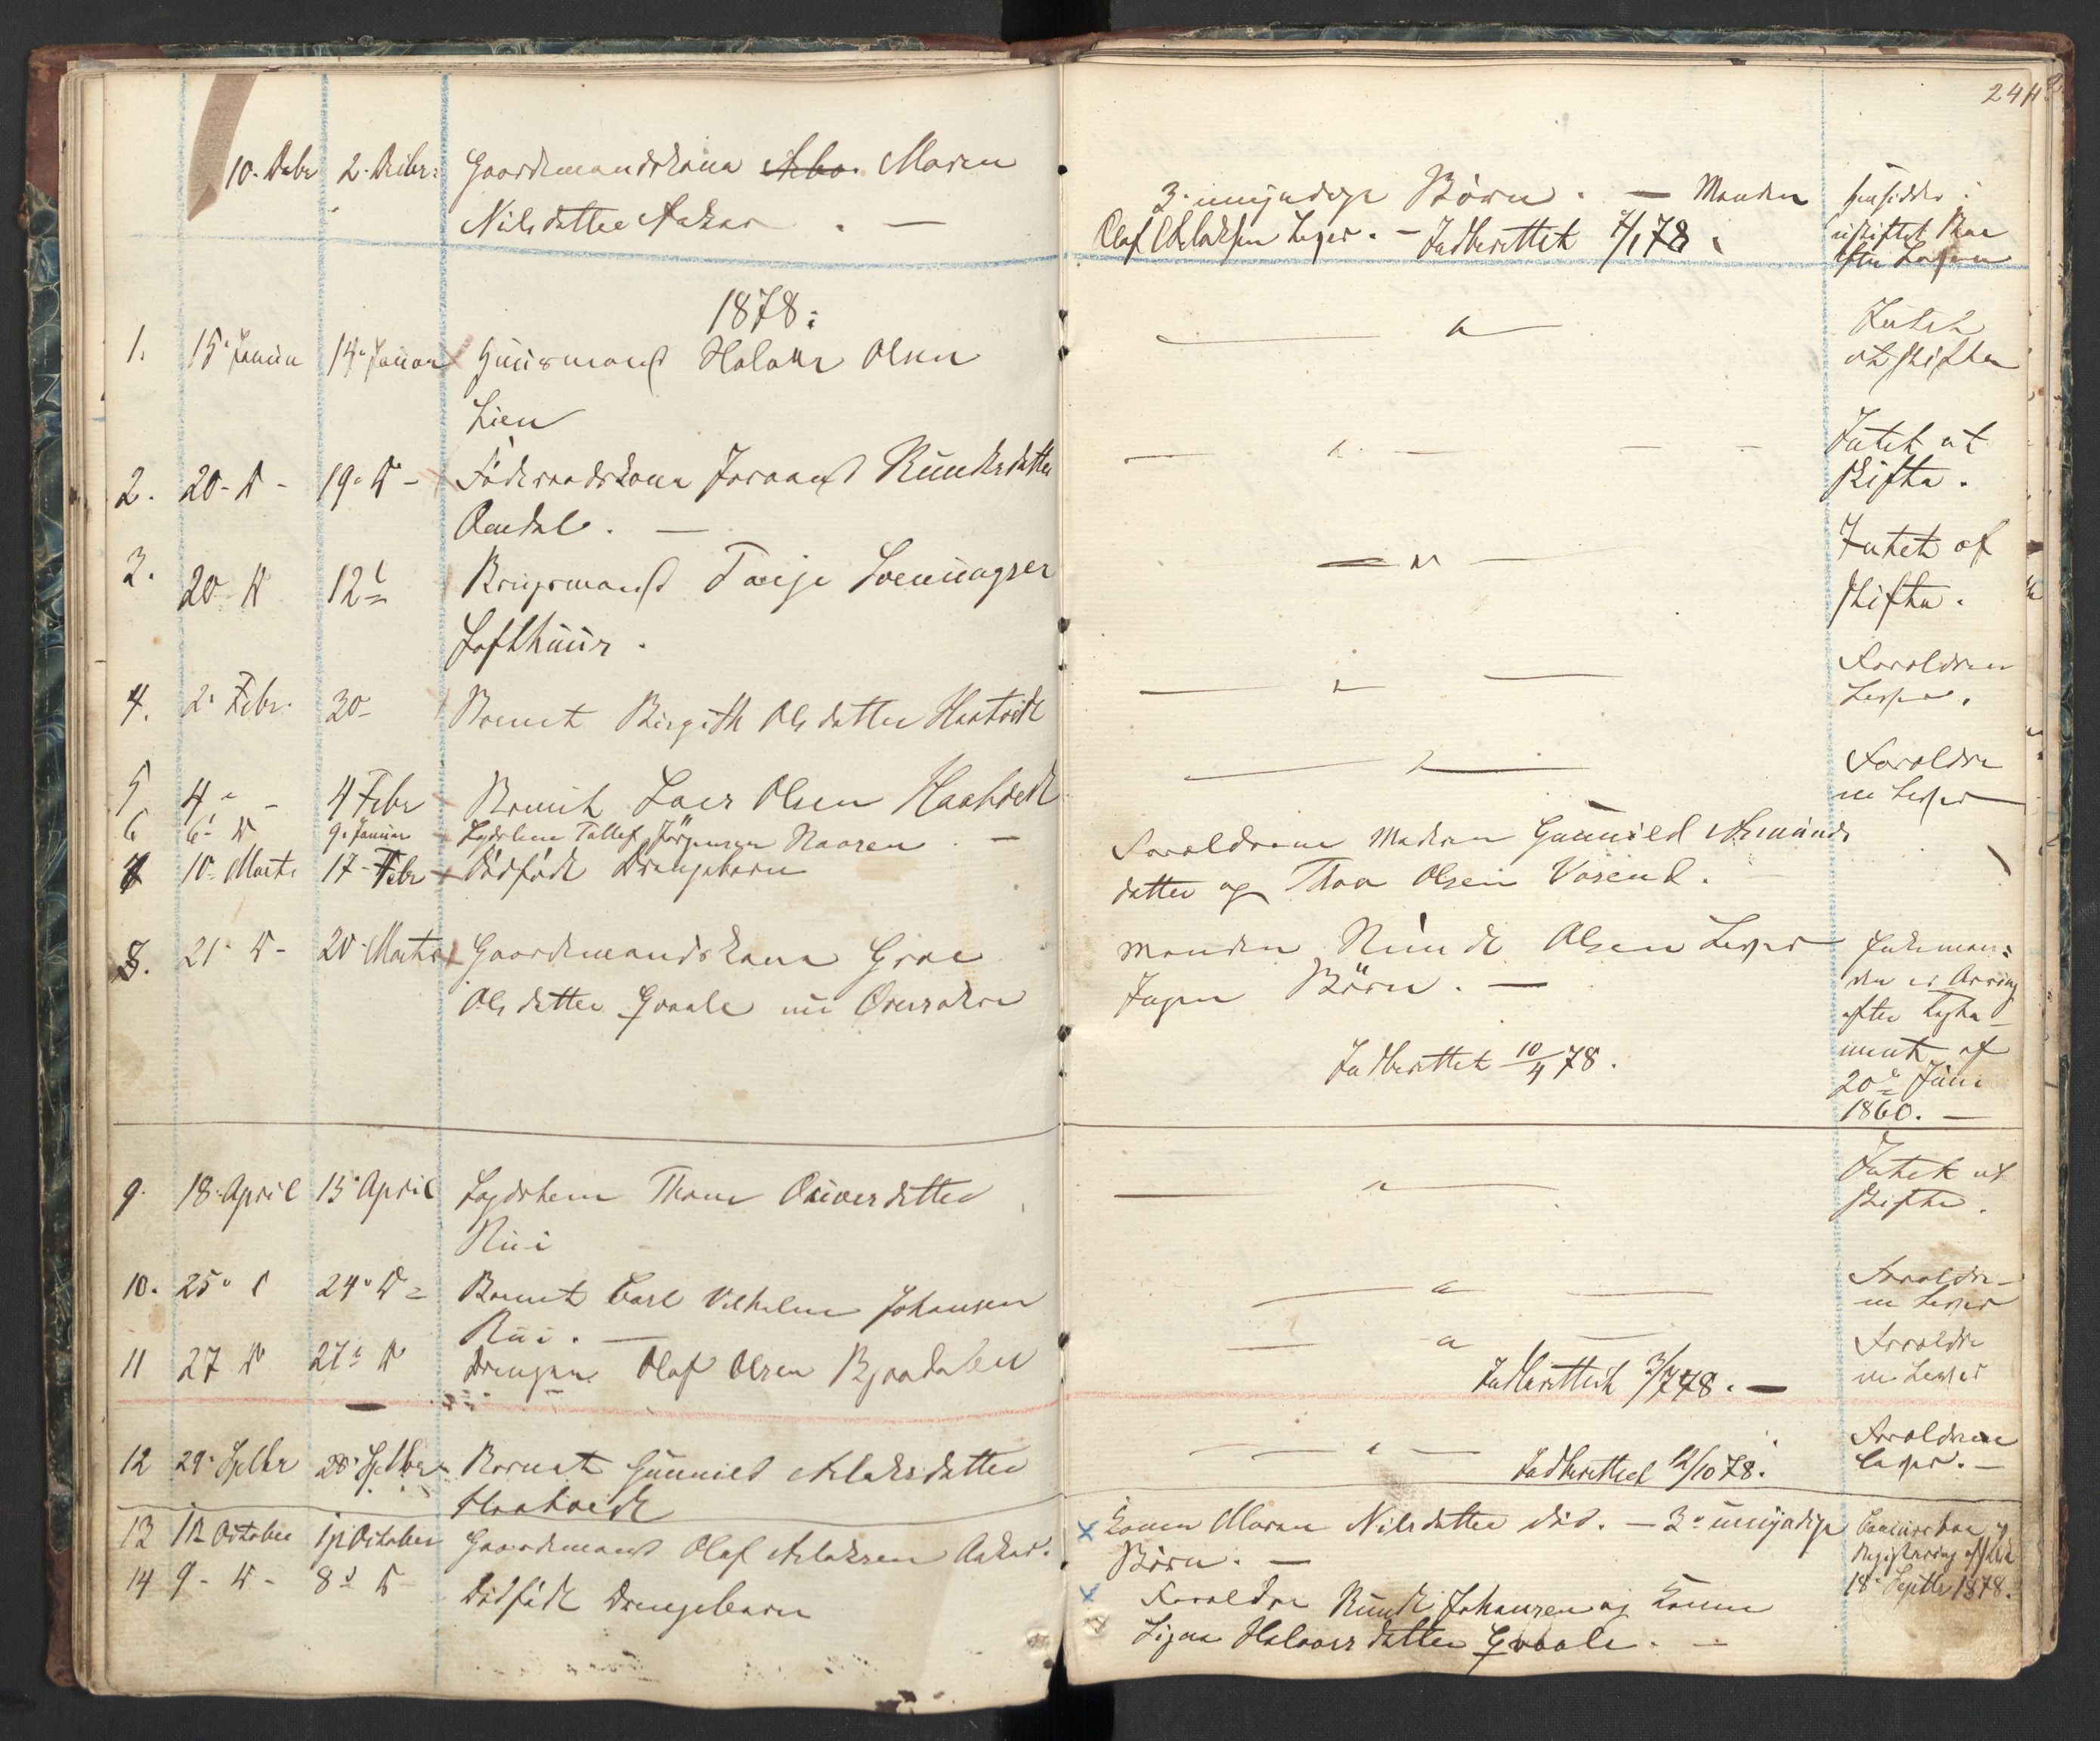 244
10. Decbr 2. Decbr: Gaardmandskona Maren
Nilsdatter Aakar . —
3 umyndige Börn . — Manden
Olaf Aslaksen Lever . — Indberettet 7/1 78 .
hensidder i
uskiftet Boe
efter Loven
1878:
1. 15. Januar 14. Januar Huusmand Halvor Olsen
Lien
— " —
Intet
at skifte
2. 20 - D - 19 - D - Föderaadskone Joraand Knudsdatter
. —
— " —
Intet at
skifte .
3. 20 D 12 Brugsmand Tarje
Lofthuus .
— " —
Intet at
skifte .
4. 2. Febr. 30 Barnet Birgith Olsdatter Haatvedt
— " —
Foraldrene
Lever .
5 4 " - 4 Febr Barnet Lars Olsen Haatvedt
— " —
Foraldre
ne Lever
6 6 D 9. Januar Lægdslem Tallef Jörgensen Naaren . —
7 10 Marts 17 Febr Dödfödt Drengebarn
Foraldrene Moderen Gunnild Amunds
datter og Thor Olsen Vasend .
8. 21 - D - 20 Marts Gaardmandskone Groe
Olsdatter Graale
Manden Knudt Olsen Lever
Ingen Börn . —
Indberettet 10/4 78 .
Enkeman=
den er Arving
efter Testa-
ment af
20 Juni
1860. —
9. 18. April 15. April Lægdslem Thone Oliversdatter
Rui
— " —
Intet at
skifte .
10. 25 24 D Barnet Carl Vilhelm Johansen
Rui . —
— " —
Foraldre-
ne Lever
11 27 D 27 D Drengen Olaf Olsen Bjaadalen
— " —
Indberettet 3/7 78 . —
Foraldre
ne Lever
12 29. Septbr 28. Septbr Barnet Gunnild Aslaksdatter
Haatvedt
— " —
Indberettet 12/10 78 .
Foraldrene
Lever . —
13 October October Gaardmand Olaf Aslaksen Aakar .
Konen Maren Nilsdatter död . — 3 umyndige
Börn . —
Concursboe og
Registrering afholdt
18. Septbr 1878.
14 9 - D - 8 D Dödfödt Drengebarn
Foraldre Knudt Johansen og Konen
Signe Halvorsdatter Graale . —